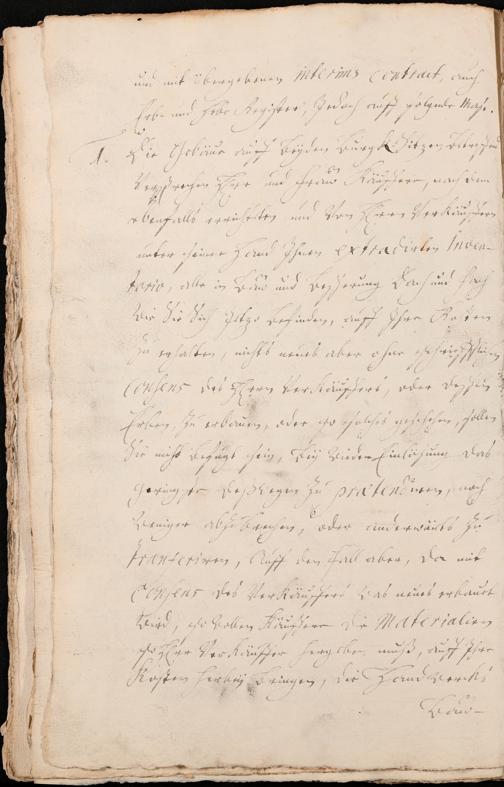 und mit übergebenen interims Contract, auch
Erb- und Register, Jedoch auff folgende Maße.
1. Die Gebäue auff Beyden Burgk Sitzen betreffend
Versprechen Herr und Frau Käuffere, nach dem
ebenfalls errichteten und Von Herrn Verkäuffern
unter seiner Hand Ihnen extradirten Inven-
tario, alle in Bau und Beßerung Dach und Fach
wie Sie Sich itzo befinden, auff Ihre Kosten
zu erhalten, nichts neues aber ohne schrifftlichen
Consens des Herrn Verkäuffers, oder deßen
Erben, zu erbauen, oder wo solches geschehen, sollen
Sie nicht befugt sein, bey Wieder Einlösung das
geringste deßwegen zu prätendiren, noch
Weniger abzubrechen, oder anderwärts zu
transferiren, Auff den Fall aber, da mit
Consens des Verkäuffers was neues erbauet
Wird, so wollen Käuffere die Materialien
so Herr Verkäuffer hergeben muß, auff Ihre
Kosten herbey bringen, die Handwercks
Bau-